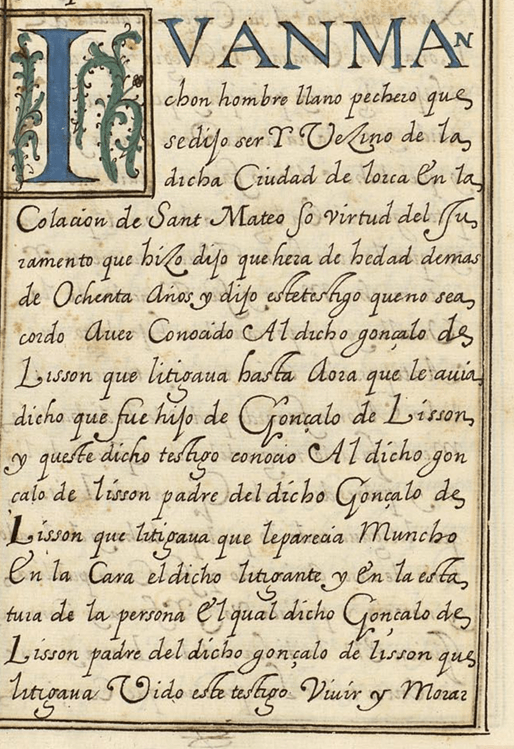 IVAN MAn
chon hombre llano pechero que
se dijo ser Y Vezino de la
dicha Ciudad de lorca En la
Colacion de Sant Mateo so virtud del Ju
ramento que hizo dijo que hera de hedad demas
de Ochenta Años y dijo este testigo que no sea
cordo Auer Conocido Al dicho gonçalo de
Lisson que litigaua hasta Aora que le auia
dicho que fue hijo de Gonçalo de Lisson
y queste dicho testigo conocio Al dicho gon
çalo de lisson padre del dicho Gonçalo de
Lisson que litigaua que leparecia Muncho
En la Cara el dicho litigante y En la esta
tura de la persona El qual dicho Gonçalo de
Lisson padre del dicho gonçalo de lisson que
litigaua Vido este testigo Viuir y Morar